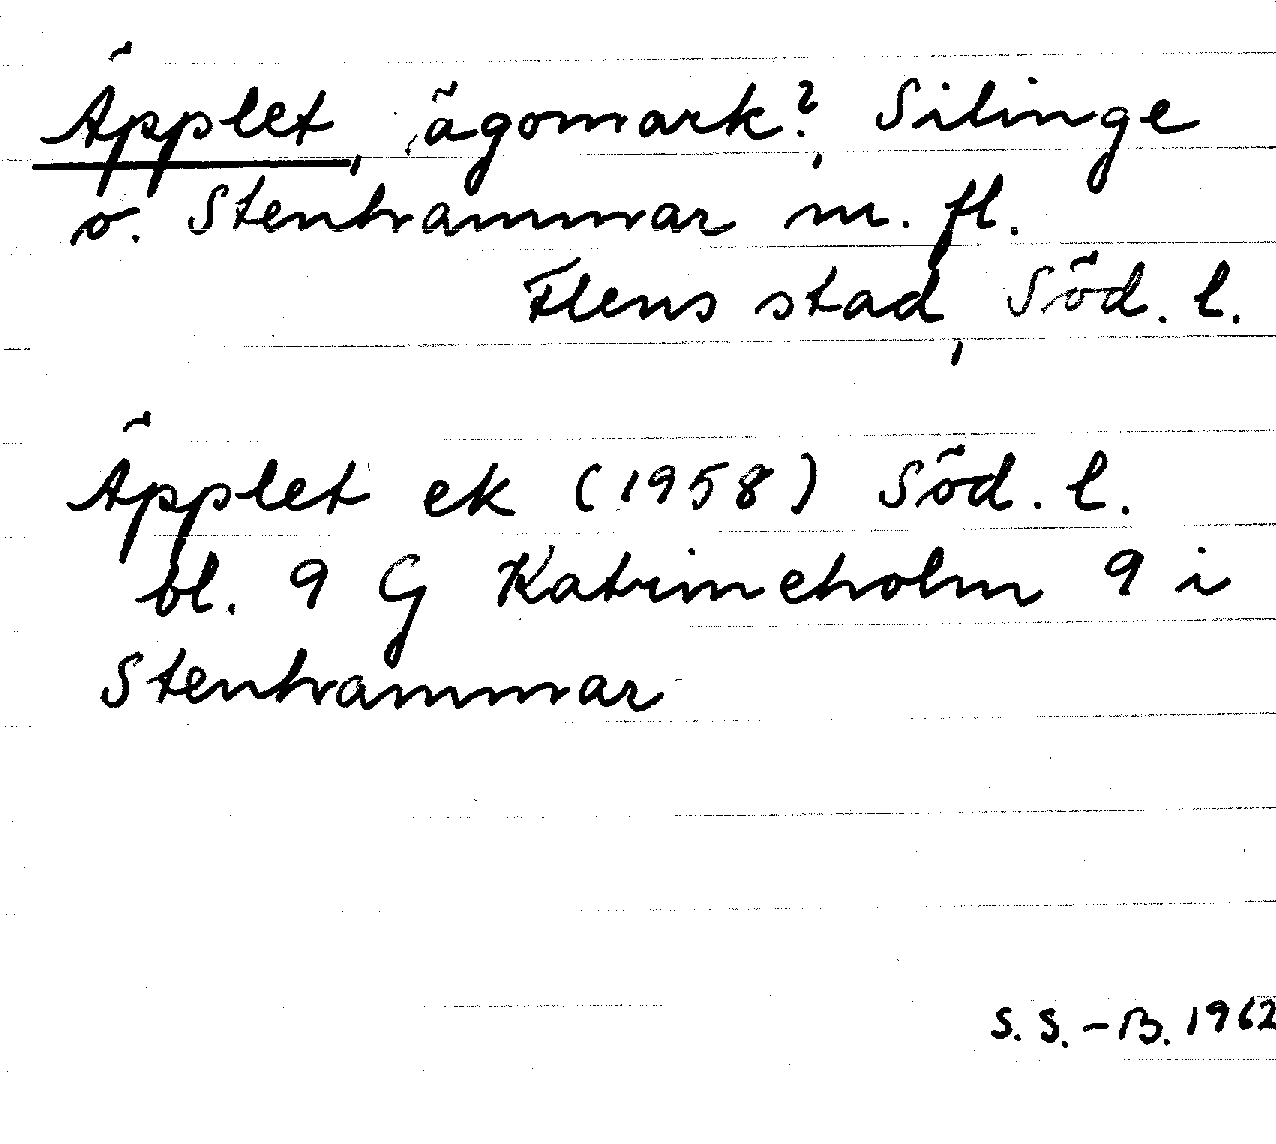 Äpplet, ägomark?, Silinge
o. Stenhammar m. fl.
Flens stad, Söd. l.
Äpplet ek (1958) Söd. l.
bl. 9 G Katrineholm 9 i
Stenhammar
S. S.-B. 1962